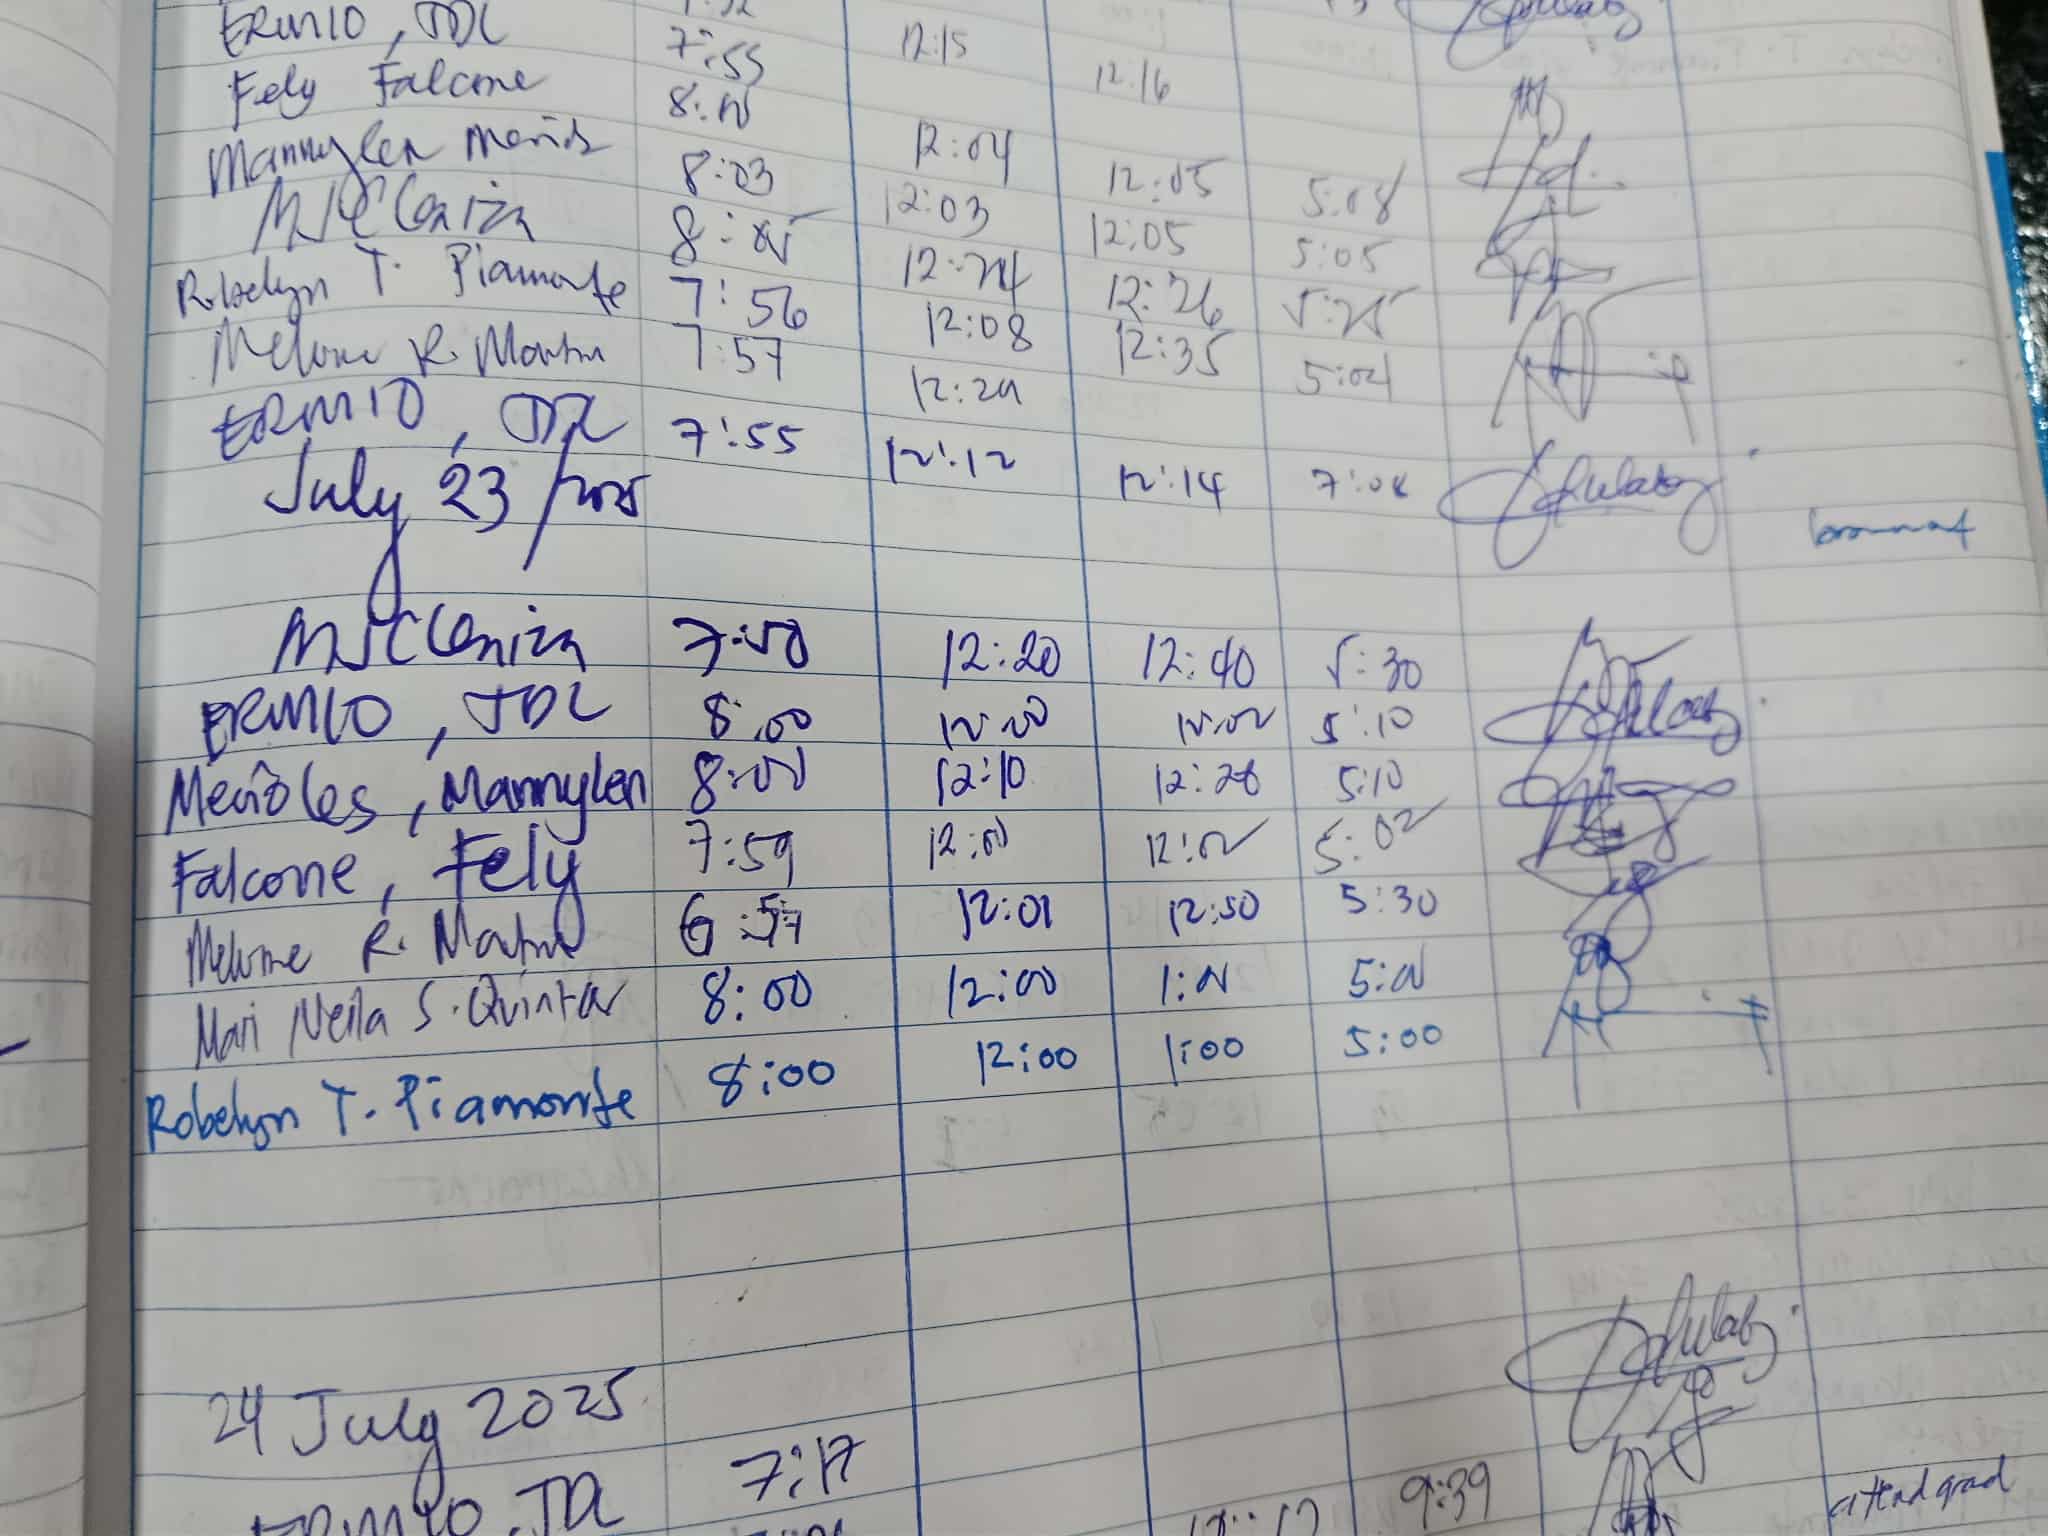 ERMIO, JDL 7:55 12:15 12:16
Fely Falcone 8:00 12:04 12:05 5:08
Mannylen 8:03 12:03 12:05 5:05
MJCCeniza 8:05 12:24 12:26 5:25
Robelyn T. Piamonte 7:56 12:08 12:35 5:04
Melvine R. 7:57 12:29
ERMIO, JDL 7:55 12:12 12:14 7:08
July 23, 2025
MJCCeniza 7:50 12:20 12:40 5:30
ERMIO, JDL 8:00 12:00 12:02 5:10
Meñoles, Mannylen 8:00 12:10 12:28 5:10
Falcone, Fely 7:59 12:00 12:02 5:02
Melvine R. 6:57 12:01 12:50 5:30
Mari Neila S. Quintar 8:00 12:00 1:00 5:00
Robelyn T. Piamonte 8:00 12:00 1:00 5:00
24 July 2025
ERMIO, JDL 7:17 9:39
attend grad